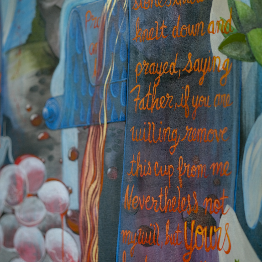 knelt down and
prayed, saying
Father, if you are
willing remove
this cup from me
Nevertheless not
my will but yours